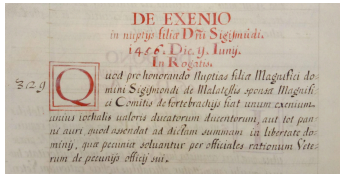 DE EXENIO
in nuptijs filiæ Dñi Sigismũdi.
1456. Die. 9. Iunij.
In Rogatis.
3129 Quod pro honorando Nuptias filiæ Magnifici do-
mini Sigismondi de Malatestis sponsæ Magnifi-
ci Comitis de fortebrachijs fiat unum exenium
unius iockalis valoris ducatorum ducentorum, aut tot pan-
ni auri, quod ascendat ad dictam summam in libertate do-
minij, quæ pecuniæ soluantur per officiales rationum Vete-
rum de pecunijs officij sui.